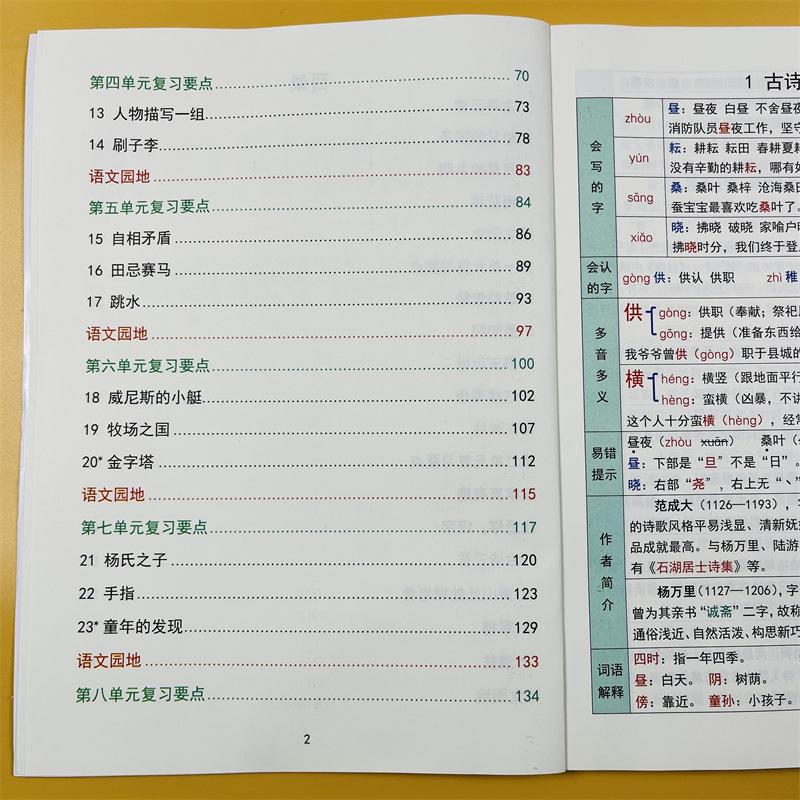 第四单元复习要点 70
13 人物描写一组 73
14 刷子李 78
语文园地 83
第五单元复习要点 84
15 自相矛盾 86
16 田忌赛马 89
17 跳水 93
语文园地 97
第六单元复习要点 100
18 威尼斯的小艇 102
19 牧场之国 107
20* 金字塔 112
语文园地 115
第七单元复习要点 117
21 杨氏之子 120
22 手指 123
23* 童年的发现 129
语文园地 133
第八单元复习要点 134
2
1 古诗
会写的字
zhòu
昼：昼夜 白昼 不舍昼夜
消防队员昼夜工作，坚守
yún
耘：耕耘 耘田 春耕夏耘
没有辛勤的耕耘，哪有如
sāng
桑：桑叶 桑梓 沧海桑田
蚕宝宝最喜欢吃桑叶了。
xiǎo
晓：拂晓 破晓 家喻户晓
拂晓时分，我们终于登
会认的字
gòng 供：供认 供职 zhì 稚
多音多义
供 gòng：供职（奉献；祭祀
gōng：提供（准备东西给
我爷爷曾供（gòng）职于县城的
横 héng：横竖（跟地面平行
hèng：蛮横（凶暴，不讲
这个人十分蛮横（hèng），经常
易错提示
昼夜（zhòu xuān） 桑叶（
昼：下部是“旦”不是“日”。
晓：右部“尧”，右上无“丶”
作者简介
范成大（1126—1193），
的诗歌风格平易浅显、清新妩媚
品成就最高。与杨万里、陆游
有《石湖居士诗集》等。
杨万里（1127—1206），字
曾为其亲书“诚斋”二字，故称
通俗浅近、自然活泼、构思新巧
词语解释
四时：指一年四季。
昼：白天。 阴：树荫。
傍：靠近。 童孙：小孩子。